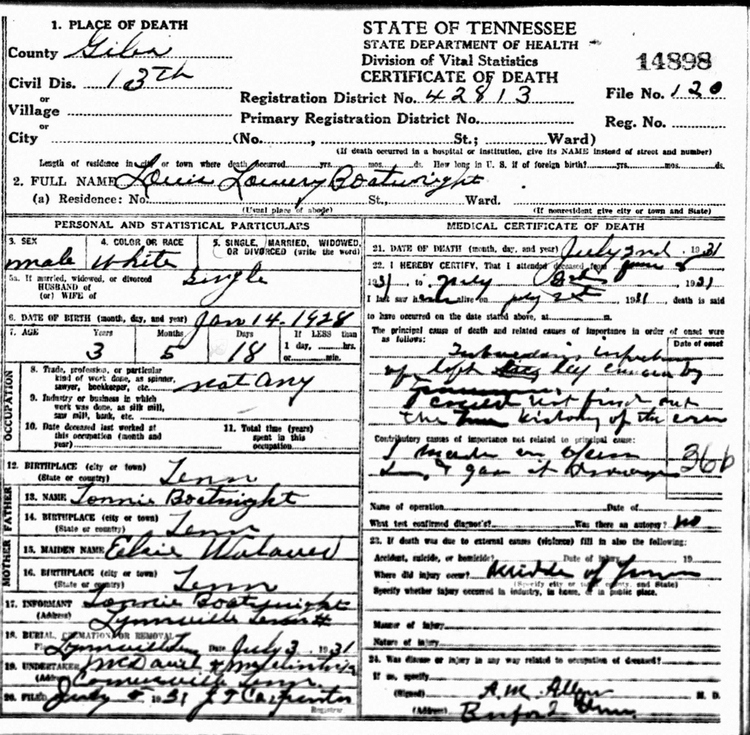 1. PLACE OF DEATH
County Giles
Civil Dis. 13th
or
Village
or
City (No. , St.; Ward)
STATE OF TENNESSEE
STATE DEPARTMENT OF HEALTH
Division of Vital Statistics
CERTIFICATE OF DEATH
14898
Registration District No. 42813 File No. 120
Primary Registration District No. Reg. No.
(If death occurred in a hospital or institution, give its NAME instead of street and number)
Length of residence in city or town where death occurred yrs. mos. ds. How long in U. S. if of foreign birth? yrs. mos. ds.
2. FULL NAME Louis Lowery Boatwright
(a) Residence: No. St., Ward.
(Usual place of abode) (If nonresident give city or town and State)
PERSONAL AND STATISTICAL PARTICULARS
3. SEX 4. COLOR OR RACE 5. SINGLE, MARRIED, WIDOWED, OR DIVORCED (write the word)
male White single
5a. If married, widowed, or divorced
HUSBAND of
(or) WIFE of
6. DATE OF BIRTH (month, day, and year) Jan 14-1928
7. AGE Years Months Days If LESS than
1 day, hrs.
or min.
3 5 18
OCCUPATION
8. Trade, profession, or particular
kind of work done, as spinner,
sawyer, bookkeeper, etc. not any
9. Industry or business in which
work was done, as silk mill,
saw mill, bank, etc.
10. Date deceased last worked at
this occupation (month and
year)
11. Total time (years)
spent in this
occupation
12. BIRTHPLACE (city or town)
(State or country) Tenn
FATHER
13. NAME Lonnie Boatright
14. BIRTHPLACE (city or town)
(State or country) Tenn
MOTHER
15. MAIDEN NAME Elsie
16. BIRTHPLACE (city or town)
(State or country) Tenn
17. INFORMANT Lonnie Boatwright
(Address) Lynnville Tenn
18. BURIAL, CREMATION OR REMOVAL
Lynnville Date July 3, 1931
19. UNDERTAKER McDaniel &
(Address) Cornersville Tenn
20. FILED July 5 1931 J T Carpenter
Registrar
MEDICAL CERTIFICATE OF DEATH
21. DATE OF DEATH (month, day, and year) July 2nd, 1931
22. I HEREBY CERTIFY, That I attended deceased from June
1931, to July 1931
I last saw h alive on July 2nd 1931 death is said
to have occurred on the date stated above, at m.
The principal cause of death and related causes of importance in order of onset were
as follows:
Date of onset
infection
of left leg caused by
I could not find out
the history of the case
Contributory causes of importance not related to principal cause:
I made an
36b
Name of operation Date of
What test confirmed diagnosis? Was there an autopsy? no
23. If death was due to external causes (violence) fill in also the following:
Accident, suicide, or homicide? Date of injury 19
Where did injury occur? Middle of
(Specify city or town, county, and State)
Specify whether injury occurred in industry, in home, or in public place.
Manner of injury
Nature of injury
24. Was disease or injury in any way related to occupation of deceased?
If so, specify
(Signed) A. M. M. D.
(Address) Tenn.